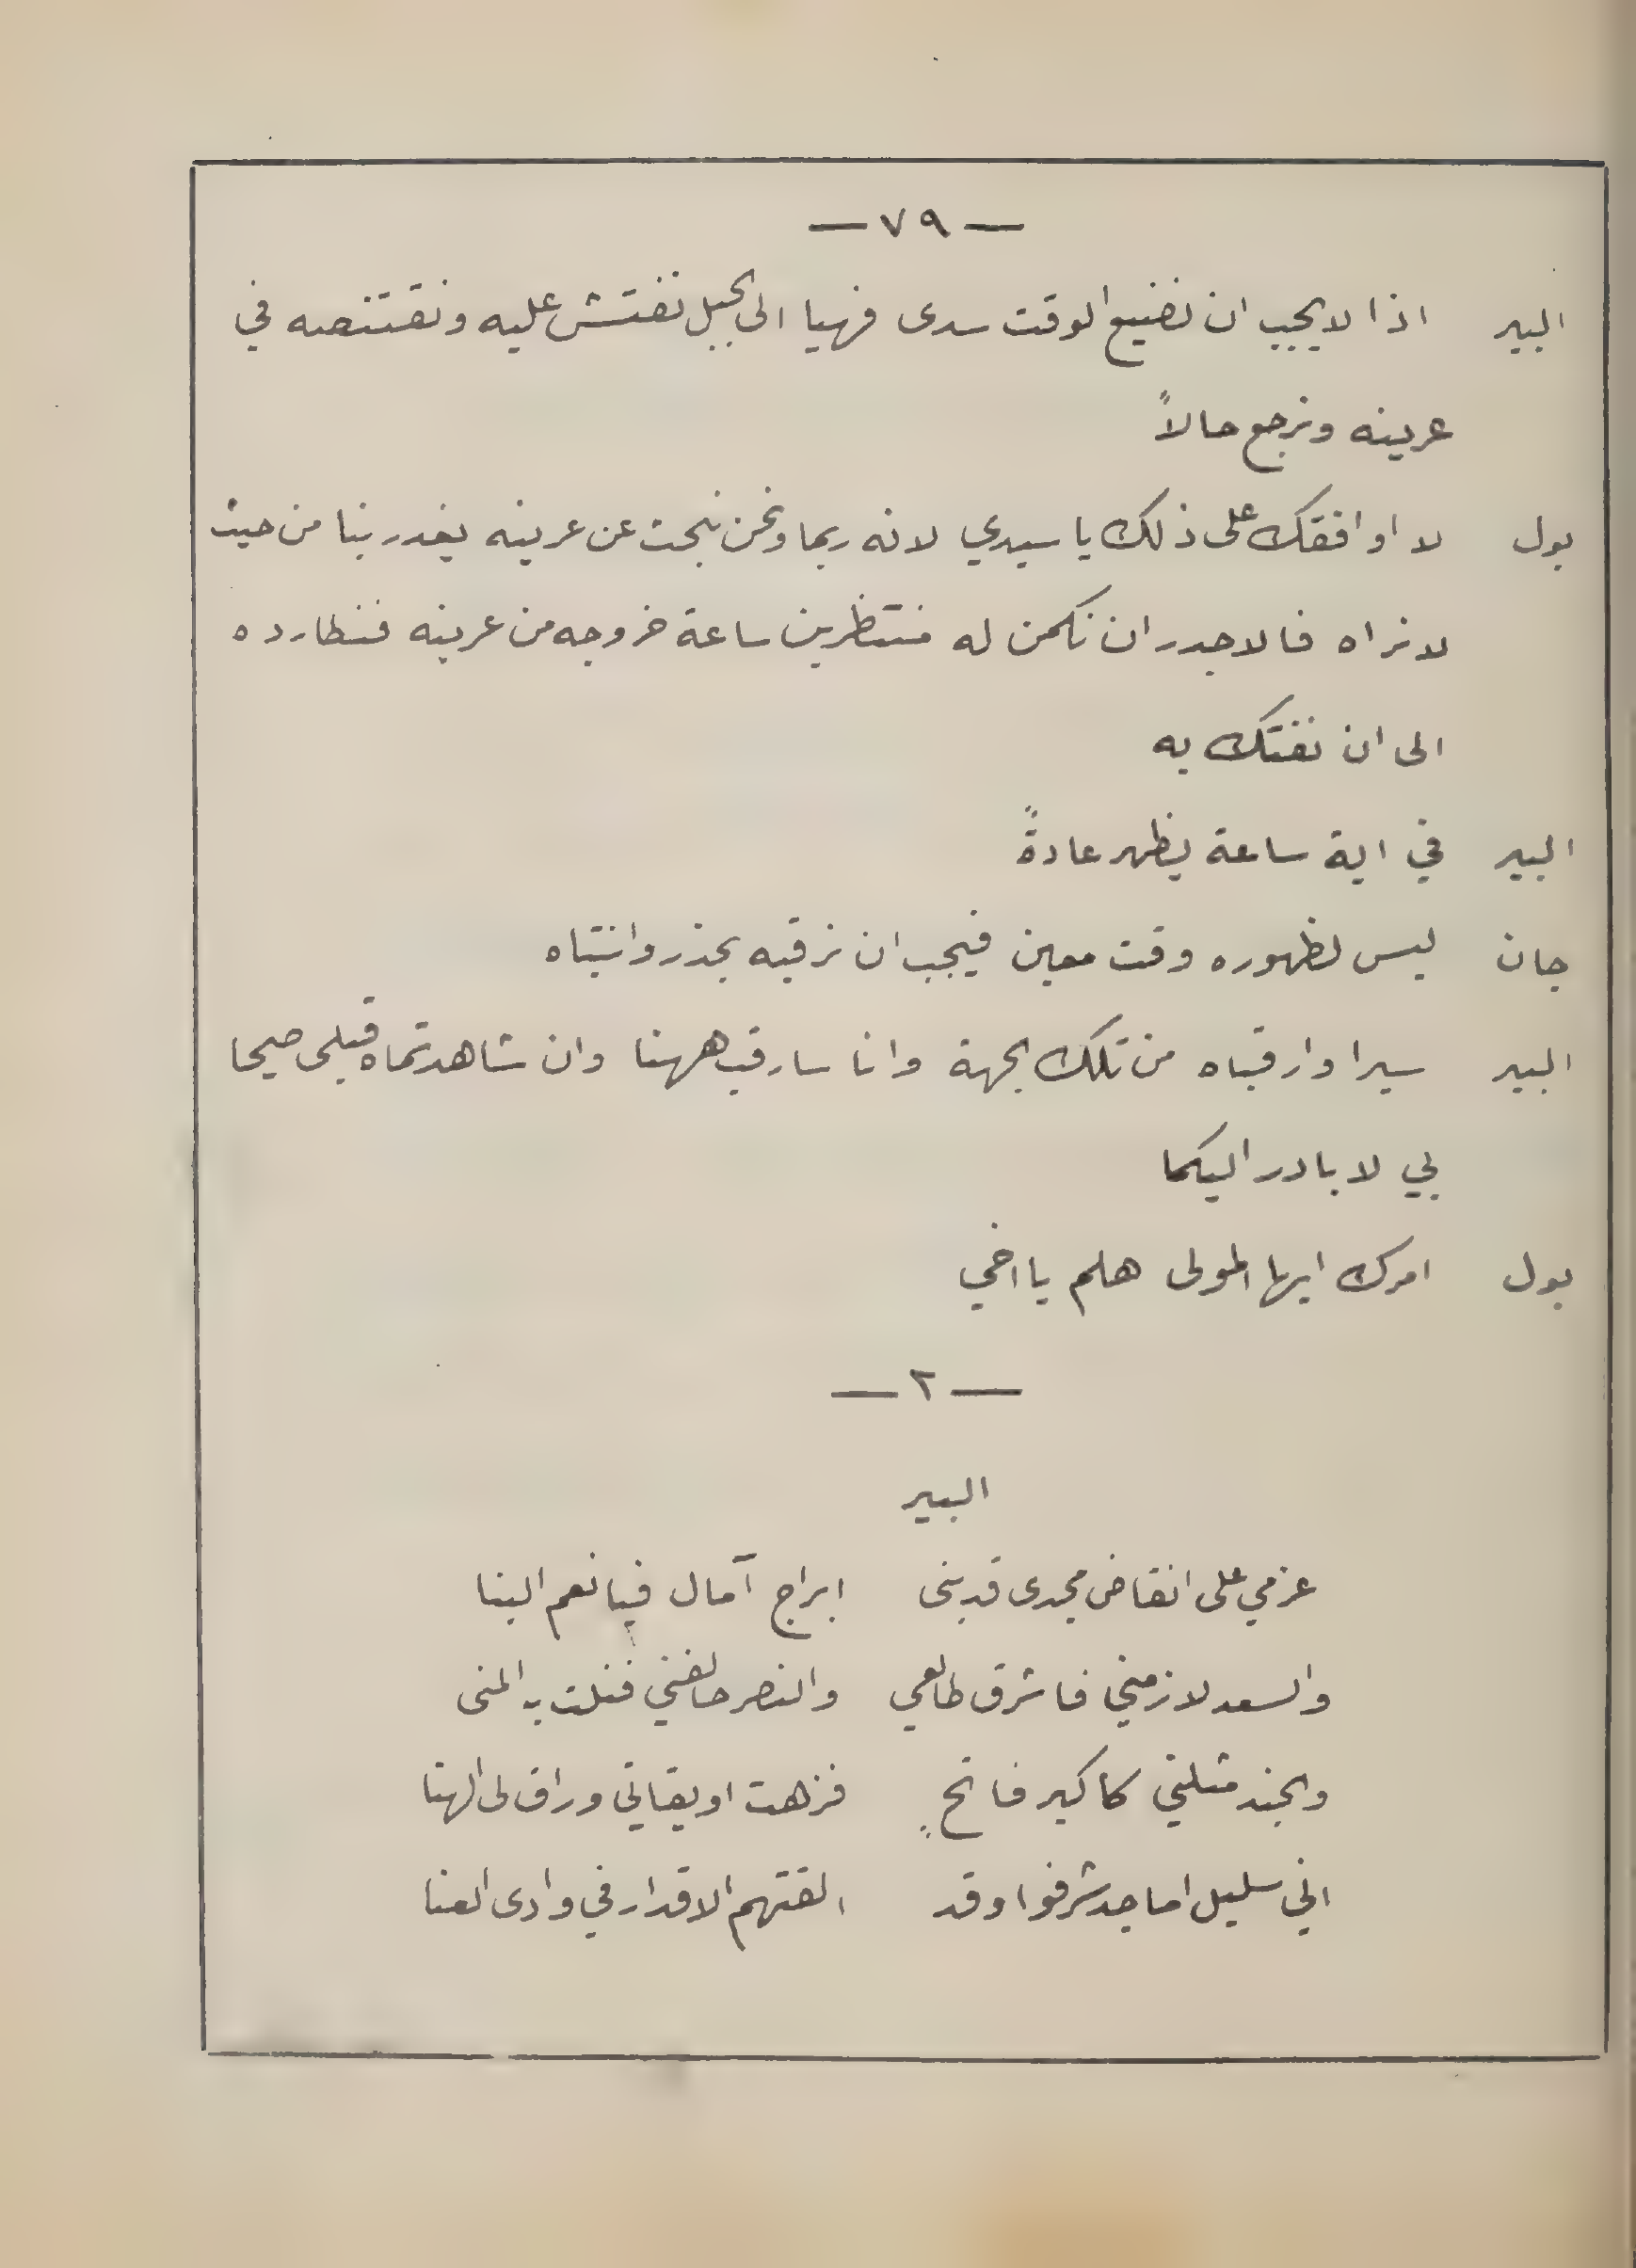 — ٧٩ —
البير اذا لا يجب ان نضيع الوقت سدى فهيا الى الجبل نفتش عليه ونقتنصه في
عرينه ونرجع حالاً
بول لا اوافقك على ذلك يا سيدي لانه ربما ونحن نبحث عن عرينه يغدر بنا من حيث
لا نراه فالاجدر ان نكمن له منتظرين ساعة خروجه من عرينه فنطارده
الى ان نفتك به
البير في اية ساعة يظهر عادةً
جان ليس لظهوره وقت معين فيجب ان نرقبه بحذر وانتباه
البير سيرا وارقباه من تلك الجهة وانا سارقب ههنا وان شاهدتماه قبلي صيحا
بي لا بادر اليكما
بول امرك ايها المولى هلم يا اخي
— ٢ —
البير
عزمي على انقاض مجدى قد بنى ابراج آمال فيا نعم البنا
والسعد لازمني فاشرق طالعي والنصر حالفني فنلت به المنى
والجند مثلني كاكبر فاتحٍ فزهت اويقاتي وراق لى الهنا
اني سليل اماجد شرفوا وقد القتهم الاقدار في وادى العنا